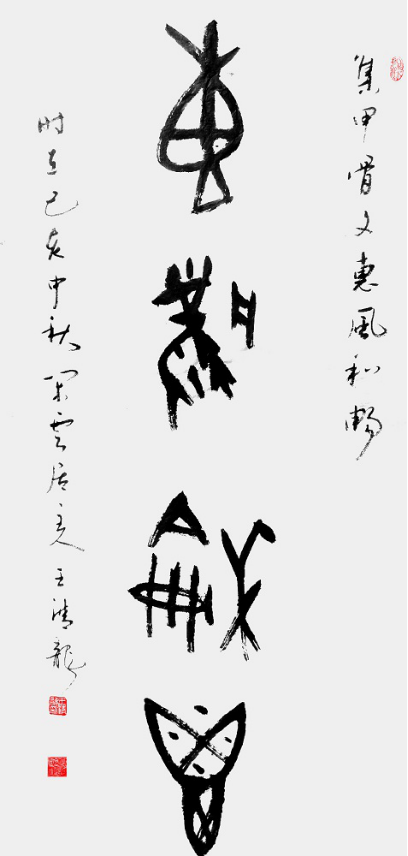 集甲骨文惠風和暢
惠風龢鬯
時在己亥中秋閑雲居主人王清龍